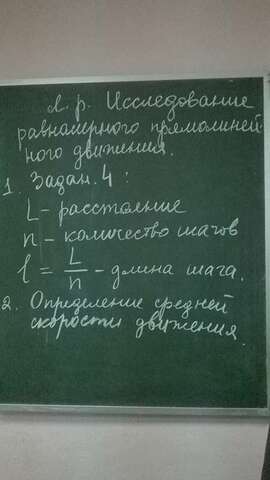 Л. р. Исследование
равномерного прямолиней-
ного движения.
1. Задан. 4 :
L - расстояние
n - количество шагов
l = L/n - длина шага.
2. Определение средней
скорости движения.